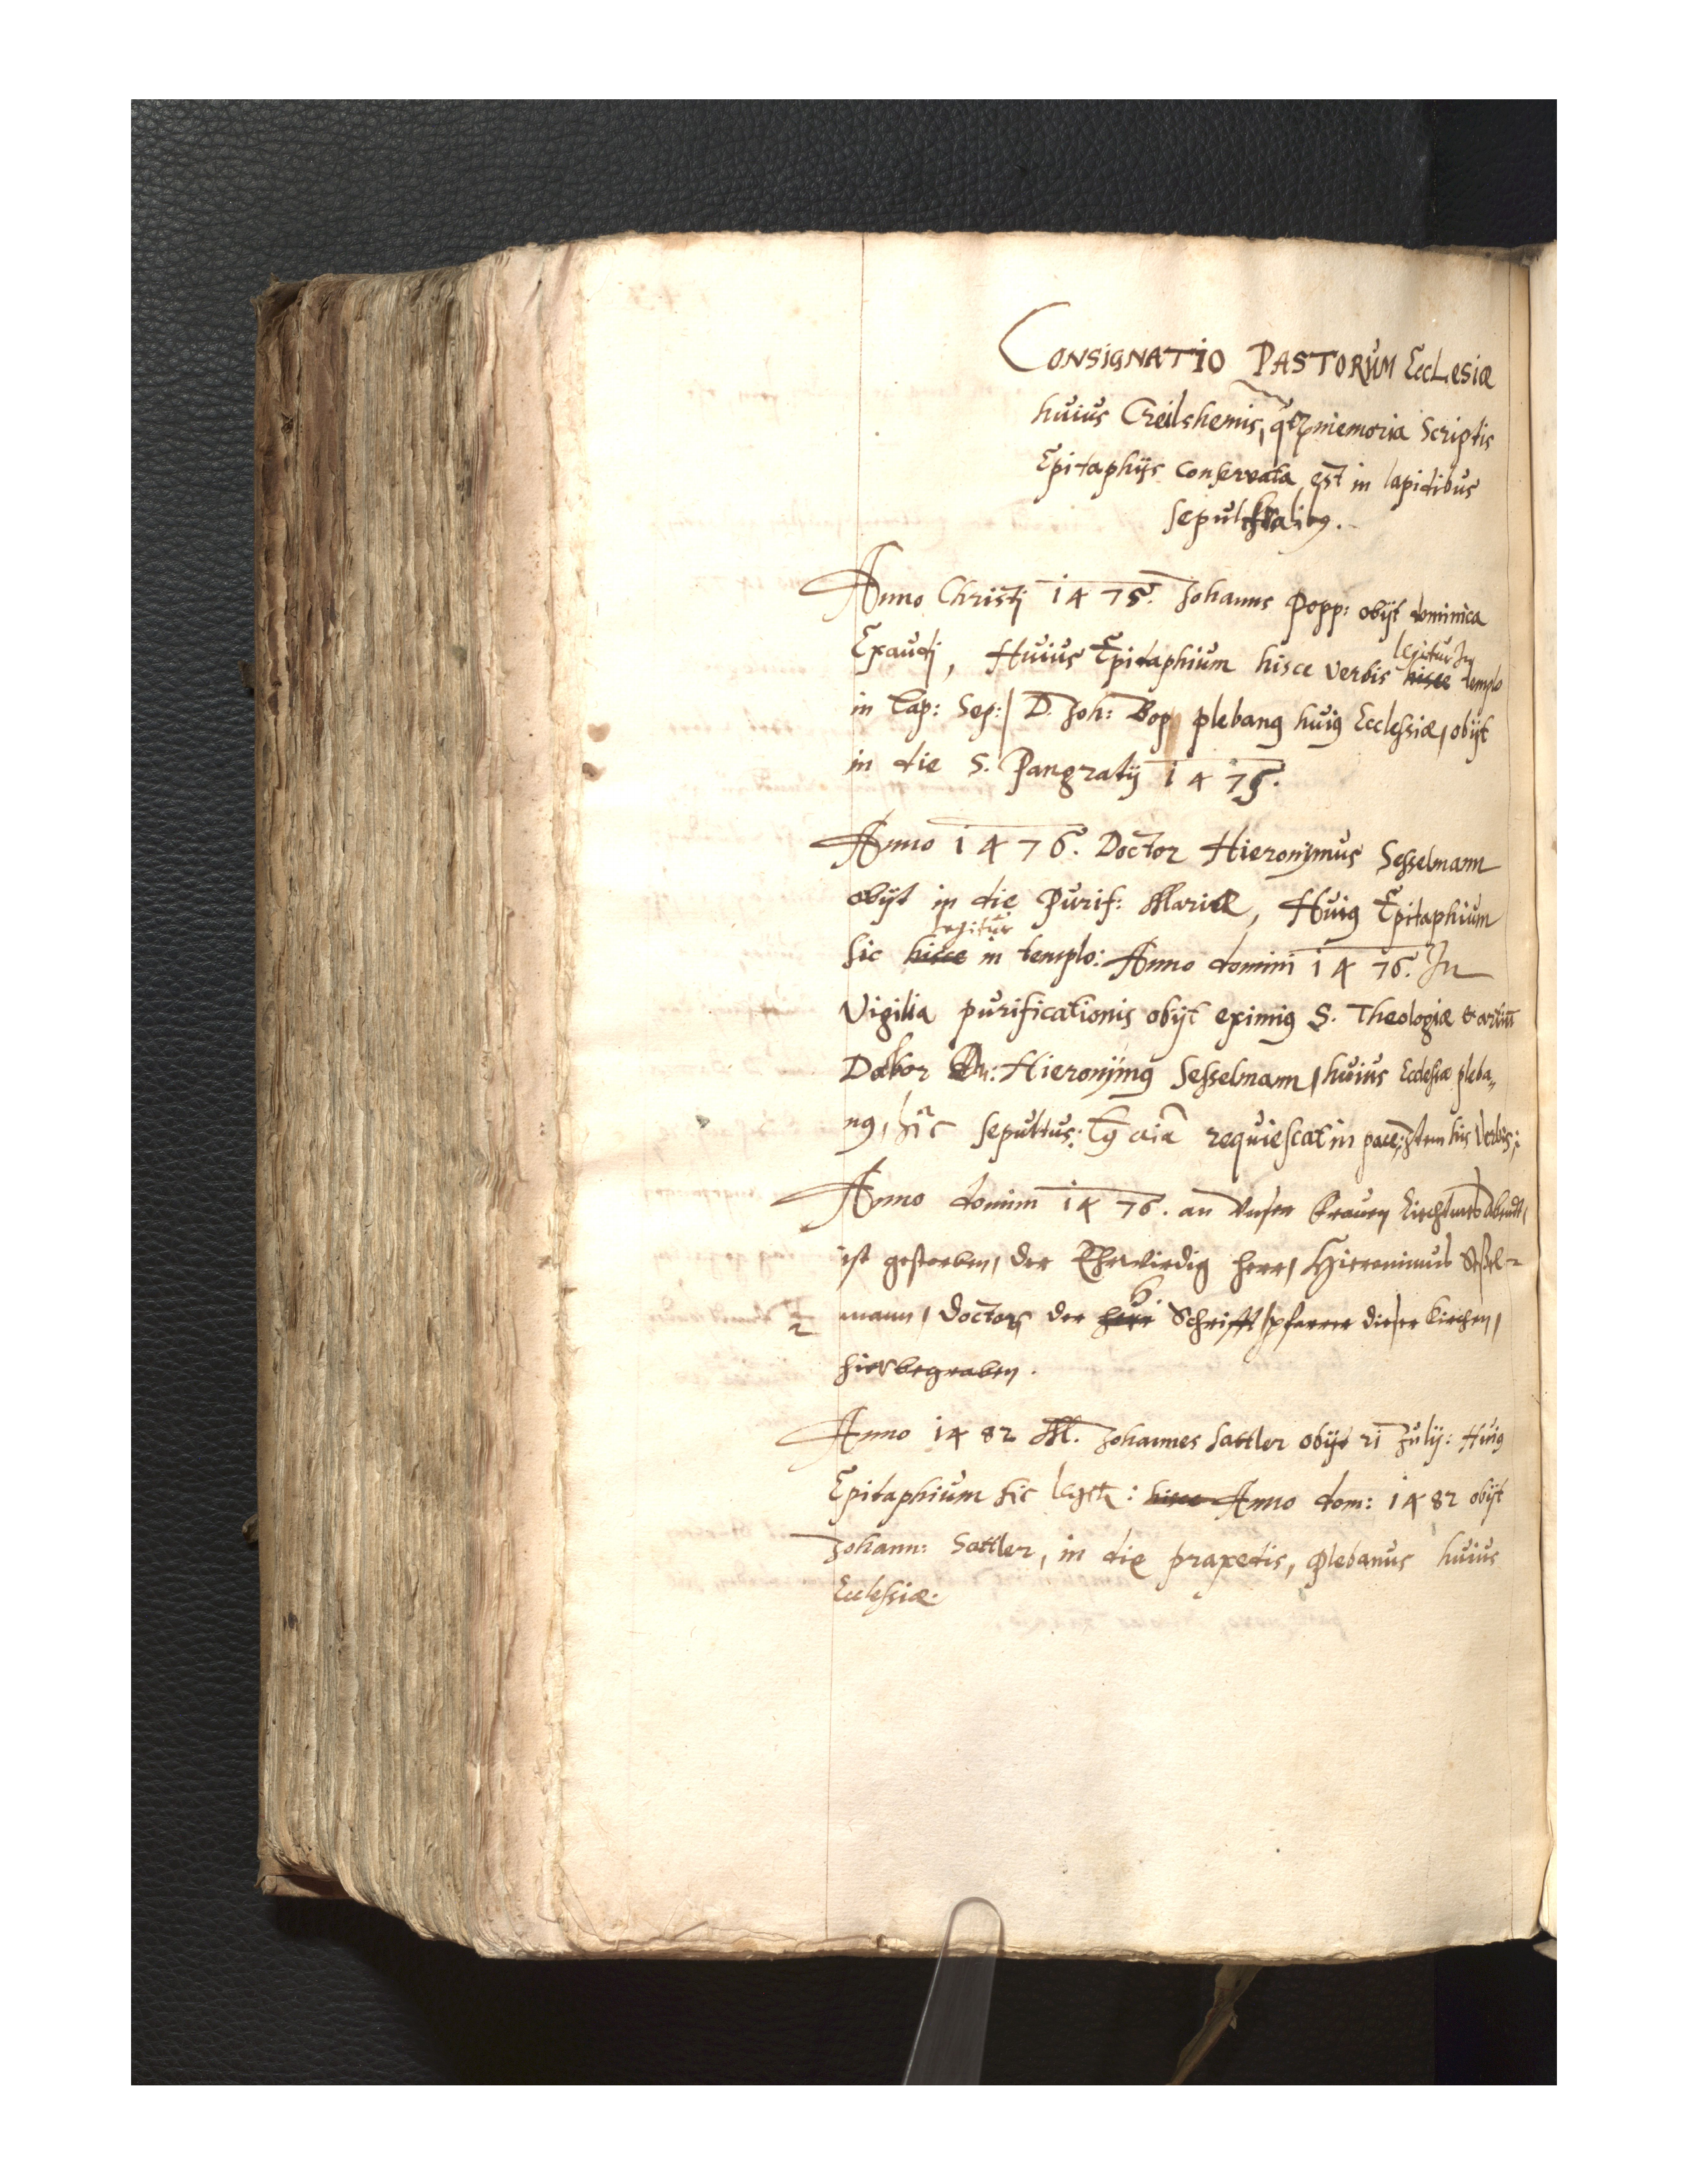 CONSIGNATIO PASTORUM EccLesiæ
huius Creilshemis, qrꝫ memoria Scriptis
Epitaphijs conservata est in lapidibus
sepulchralibꝰ.
Anno Christj 1475. Johanns Popp: obijt dominica
Exaudj, Huius Epitaphium hisce verbis legitur In templo
in Lap: Sep:/ D. Joh: Bop plebanꝰ huiꝰ Ecclesiæ, obijt
in die S. Pangratij 1475.
Anno 1476. Doctor Hieronymus Sesselmann
obijt in die Purif: Mariæ, Huiꝰ Epitaphium
sic legitur in templo: Anno domini 1476. In
Vigilia purificationis obijt eximiꝰ S. Theologiæ & artiū
Doctor Dn: Hieronymꝰ Sesselmann, huius Ecclesiæ pleba„
nꝰ, hîc sepultus: Cꝰ aīa requiescat in pace; Item his Verbis;
Anno domini 1476. an Unser Frauen Liechtmeß Abendt,
ist gestorben, der Ehrwirdig herr, Hieronimus Seßel=
mann, Doctor der h. Schrifft, pfarrer dieser Kirchen,
hier begraben.
Anno 1482 M. Johannes Sattler obijt 21 Julij: Huiꝰ
Epitaphium sic legitr: hisce Anno dom: 1482 obijt
Johann: Sattler, in die praxedis, Plebanus huius
Ecclesiæ.